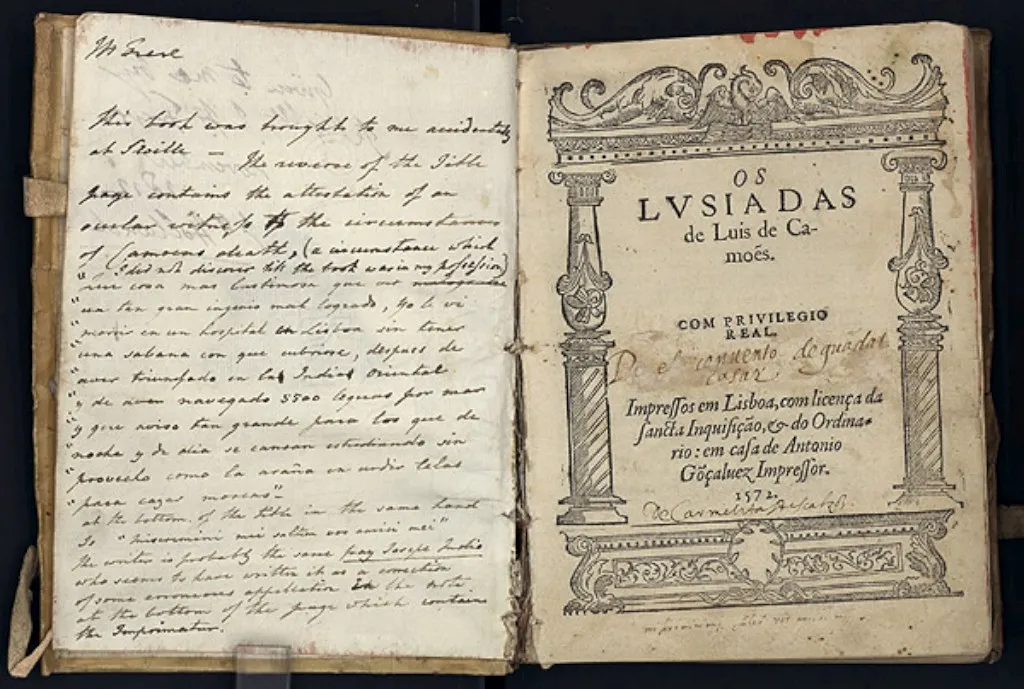 This book was brought to me accidentally
at Seville — The reverse of the Title
page contains the attestation of an
ocular witness to the circumstances
of Camoens death, (a circumstance which
I did not discover till the book was in my possession)
cosa mas lastimosa que ver
un tan gran ingenio mal logrado, yo le vi
morir en un hospital en Lisboa sin tener
una sabana con que cubrirse, despues de
aver triunfado en la India Oriental
y de aver navegado 5500 leguas por mar
y que aviso tan grande para los que de
noche y de dia se cansan estudiando sin
provecho como la araña en urdir telas
"para cazar moscas"
at the bottom of the title in the same hand
Is "miseremini mei saltem vos amici mei"
The writer is probably the same fray Joseph Indio
who seems to have written it as a correction
of some erroneous application in the note
at the bottom of the page which contains
the Imprimatur.
OS
LVSIADAS
de Luis de Ca-
moẽs.
COM PRIVILEGIO
REAL.
De el conuento de guadal
cazar
Impressos em Lisboa, com licença da
sancta Inquisição, & do Ordina-
rio: em casa de Antonio
Gõçaluez Impressor.
1572.
De Carmelitas